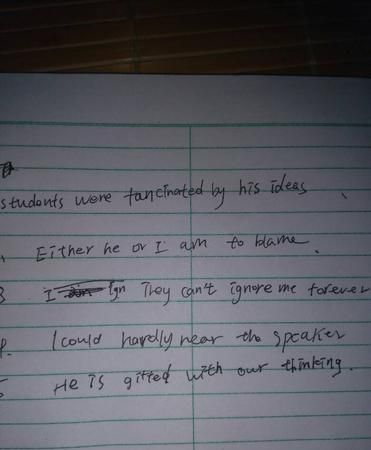 students were fancinated by his ideas
Either he or I am to blame.
3 I They can't ignore me forever
4. I could hardly near the speaker
5 He is gifted with our thinking.